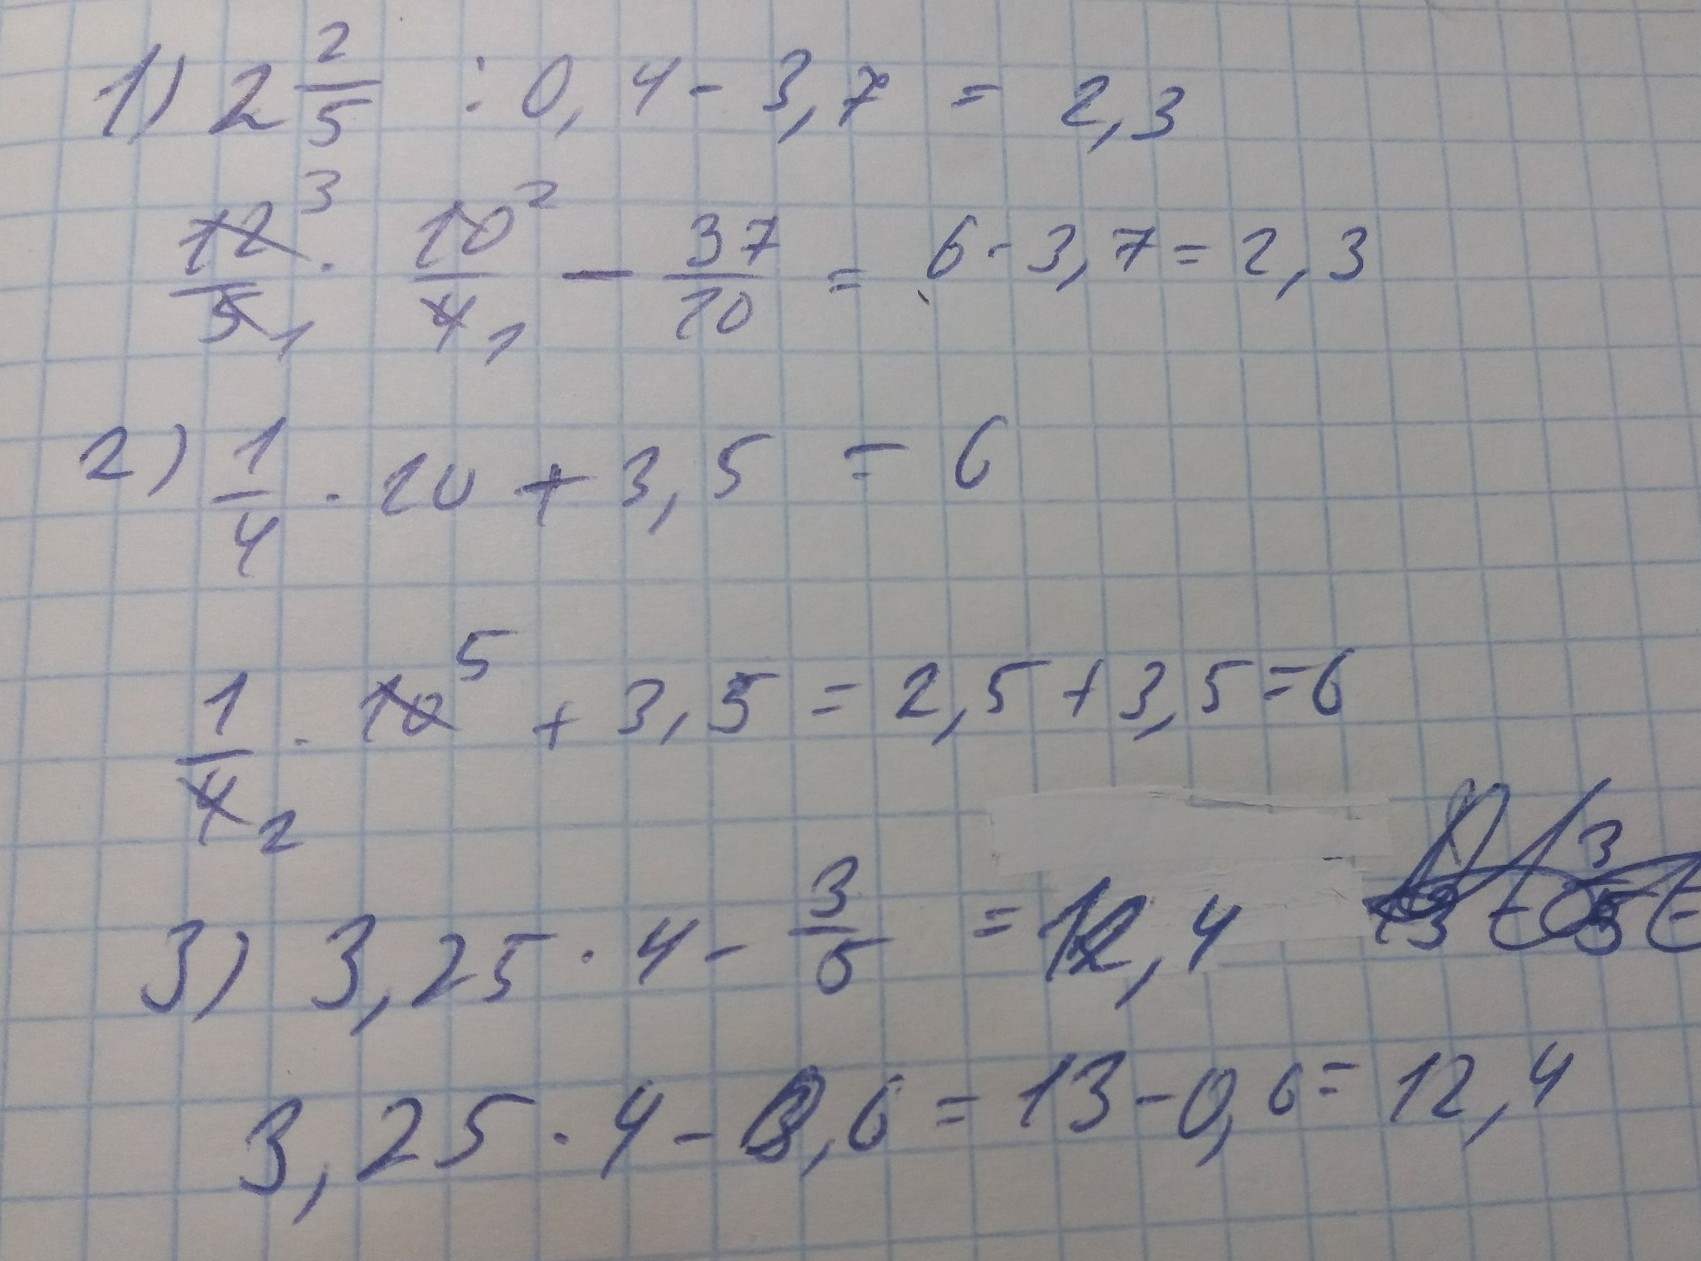 1) 2 2/5 : 0,4 - 3,7 = 2,3
12/5 3 1 · 10/4 2 1 - 37/10 = 6 - 3,7 = 2,3
2) 1/4 · 10 + 3,5 = 6
1/4 2 · 10 5 + 3,5 = 2,5 + 3,5 = 6
3) 3,25 · 4 - 3/5 = 12,4
3,25 · 4 - 0,6 = 13 - 0,6 = 12,4